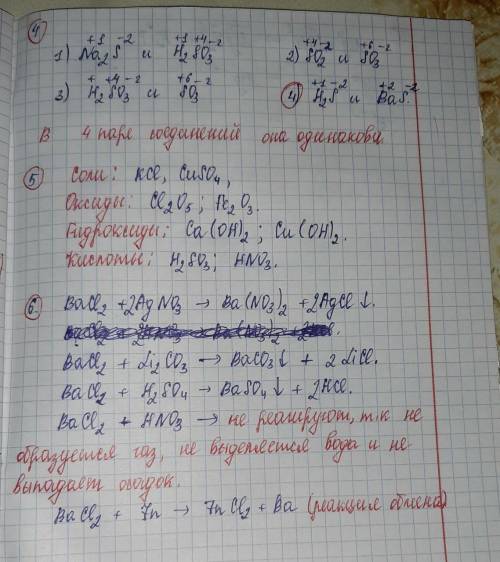 4
1) Na₂⁺¹S⁻² и H₂⁺¹S⁺⁴O₃⁻² 2) S⁺⁴O₂⁻² и S⁺⁶O₃⁻²
3) H₂⁺S⁺⁴O₃⁻² и S⁺⁶O₃⁻² 4) H₂⁺¹S⁻² и Ba⁺²S⁻².
В 4 паре соединений она одинакова.
5 Соли: KCl, CuSO₄,
Оксиды: Cl₂O₅; Fe₂O₃.
Гидроксиды: Ca(OH)₂; Cu(OH)₂.
Кислоты: H₂SO₃; HNO₃.
6 BaCl₂ + 2AgNO₃ → Ba(NO₃)₂ + 2AgCl↓.
BaCl₂ + Li₂CO₃ → BaCO₃↓ + 2LiCl.
BaCl₂ + H₂SO₄ → BaSO₄↓ + 2HCl.
BaCl₂ + HNO₃ → не реагируют, т.к. не
образуется газ, не выделяется вода и не
выпадает осадок.
BaCl₂ + Zn → ZnCl₂ + Ba (реакция обмена)